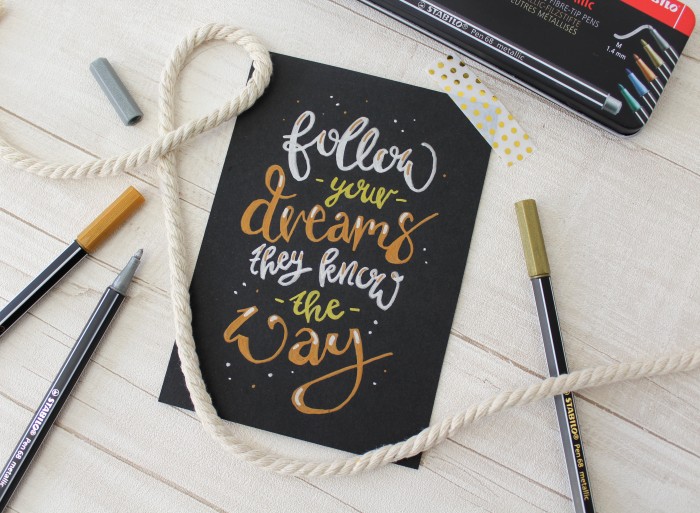 follow
- your -
dreams
they know
- the -
way
STABILO®
FIBRE-TIP PENS
FILZSTIFTE
FEUTRES MÉTALLISÉS
STABILO
M
1.4 mm
STABILO® Pen 68 metallic
STABILO® Pen 68 metallic